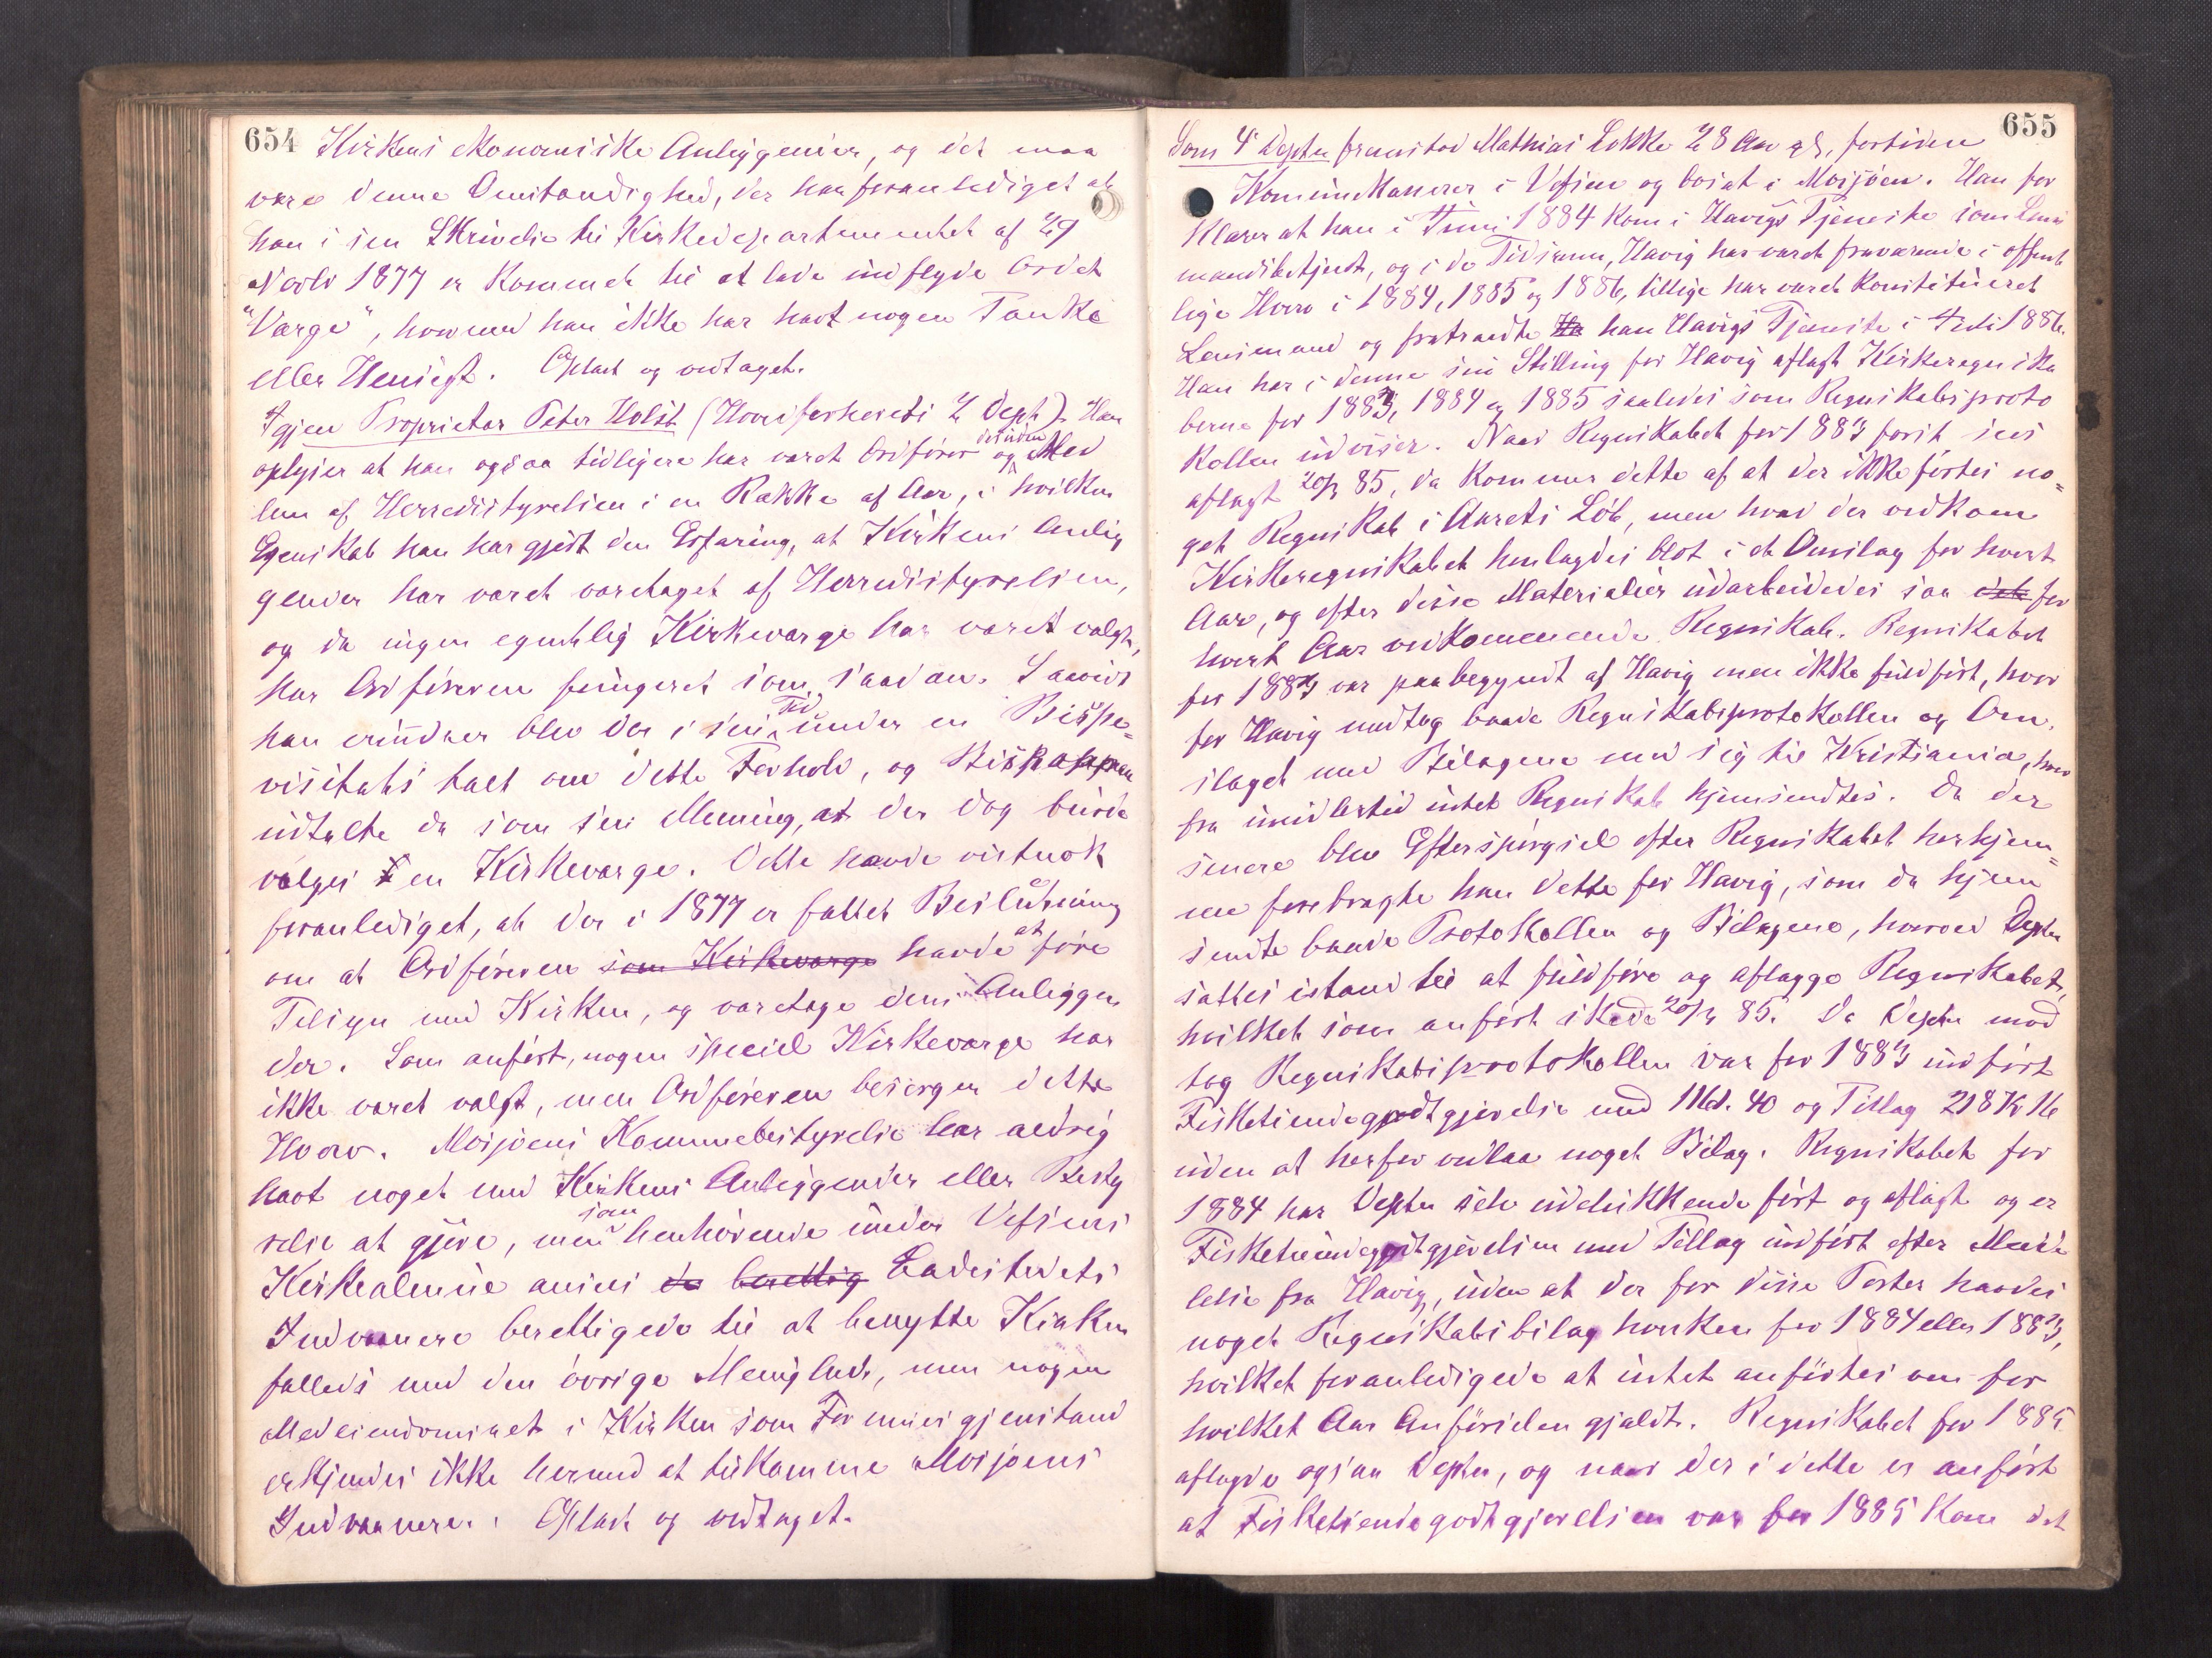 654
Kirkens økonomiske Anliggender, og det maa
være denne Omstændighed, der har foranlediget at
han i sin Skrivelse til Kirkedepartementet af 29
Novbr 1877 er kommet til at lade indflyde Ordet
"Værge", hvormed han ikke har havt nogen Tanke
eller Hensigt. Oplæst og vedtaget.
Igjen Proprietær Peter Holst (Hovedforhørets 2 Dept). Han
oplyser at han ogsaa tidligere har været Ordfører og desuden Med
lem af Herredsstyrelsen i en Række af Aar, i hvilken
Egenskab han har gjort den Erfaring, at Kirkens Anlig
gender har været varetaget af Herredsstyrelsen,
og da ingen egentlig Kirkeværge har været valgt,
har Ordføreren fungeret som saadan. Saavidt
han erindrer blev der i sin Tid under en Bispe-
visitats talt om dette Forhold, og Biskoppen
udtalte da som sin Mening, at der dog burde
vælges en Kirkeværge. Dette havde vistnok
foranlediget, at der i 1877 er fattet Beslutning
om at Ordføreren som Kirkeværge havde at føre
Tilsyn med Kirken, og varetage dens Anliggen
der. Som anført, nogen speciel Kirkeværge har
ikke været valgt, men Ordføreren besørger dette
Hverv. Mosjøens Kommunebestyrelse har aldrig
havt noget med Kirkens Anliggender eller Besty
relse at gjøre, men som henhørende under Vefsens
Kirkealmue ansees da berettig Ladestedets
Indvaanere berettigede til at benytte Kirken
fælleds med den øvrige Menighed, men nogen
Medeiendomsret i Kirken som Formuesgjenstand
erkjendes ikke hermed at tilkomme Mosjøens
Indvaanere. Oplæst og vedtaget.
655
Som 4' Deptn fremstod Mathias Løkke 28 Aar gl, fortiden
Kommunekasserer i Vefsen og bosat i Mosjøen. Han for
klarer at han i Juni 1884 kom i Havigs Tjeneste som Lens
mandsbetjent, og i de Tidsrum, Havig har været fraværende i offent
lige Hverv i 1884, 1885 og 1886, tillige har været konstitueret
Lensmand og fratraadte Ha han Havigs Tjeneste i Juli 1886.
Han har i denne sin Stilling for Havig aflagt Kirkeregnska
berne for 1883, 1884 og 1885 saaledes som Regnskabsproto
kollen udviser. Naar Regnskabet for 1883 først sees
aflagt 20/3 85, da kommer dette af at der ikke førtes no-
get Regnskab i Aarets Løb, men hvad der vedkom
Kirkeregnskabet henlagdes blot i et Omslag for hvert
Aar, og efter disse Materialier udarbeidedes saa det for
hvert Aar vedkommende Regnskab. Regnskabet
for 1883 var paabegyndt af Havig men ikke fuldført, hvor
for Havig medtog baade Regnskabsprotokollen og Om
slaget med Bilagene med sig til Kristiania, hvor
fra imidlertid intet Regnskab hjemsendtes. Da der
senere blev Efterspørgsel efter Regnskabet herhjem-
me forebragte han dette for Havig, som da hjem
sendte baade Protokollen og Bilagene, hvorved Deptn
sattes istand til at fuldføre og aflægge Regnskabet,
hvilket som anført skede 20/3 85. Da Deptn mod
tog Regnskabsprotokollen var for 1883 indført
Fisketiendegodtgjørelse med 1161. 40 og Tillæg 218 Kr 16
uden at herfor vedlaa noget Bilag. Regnskabet for
1884 har Deptn selv udelukkende ført og aflagt og er
Fisketiendegodtgjørelsen med Tillæg indført efter Medde
lelse fra Havig, uden at der for disse Poster havdes
noget Regnskabsbilag hverken for 1884 eller 1883,
hvilket foranledigede at intet anførtes om for
hvilket Aar Anførselen gjaldt. Regnskabet for 1885
aflagde ogsaa Deptn, og naar der i dette er anført
at Fisketiendegodtgjørelsen var for 1885 kom det